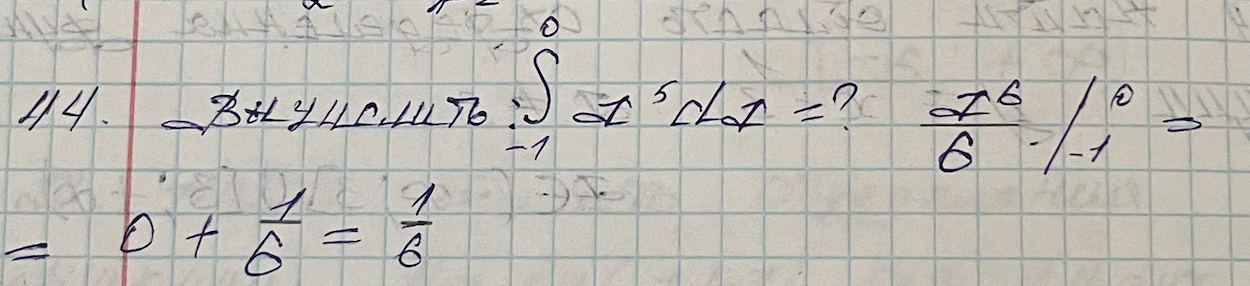 44. Вычислить: ∫₋₁⁰ x⁵dx = ? x⁶/6 /₋₁⁰ =
= 0 + 1/6 = 1/6